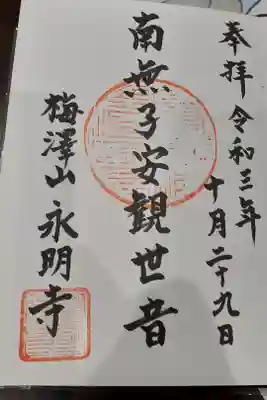 奉拝 令和三年
十月二十九日
南無子安觀世音
梅澤山 永明寺